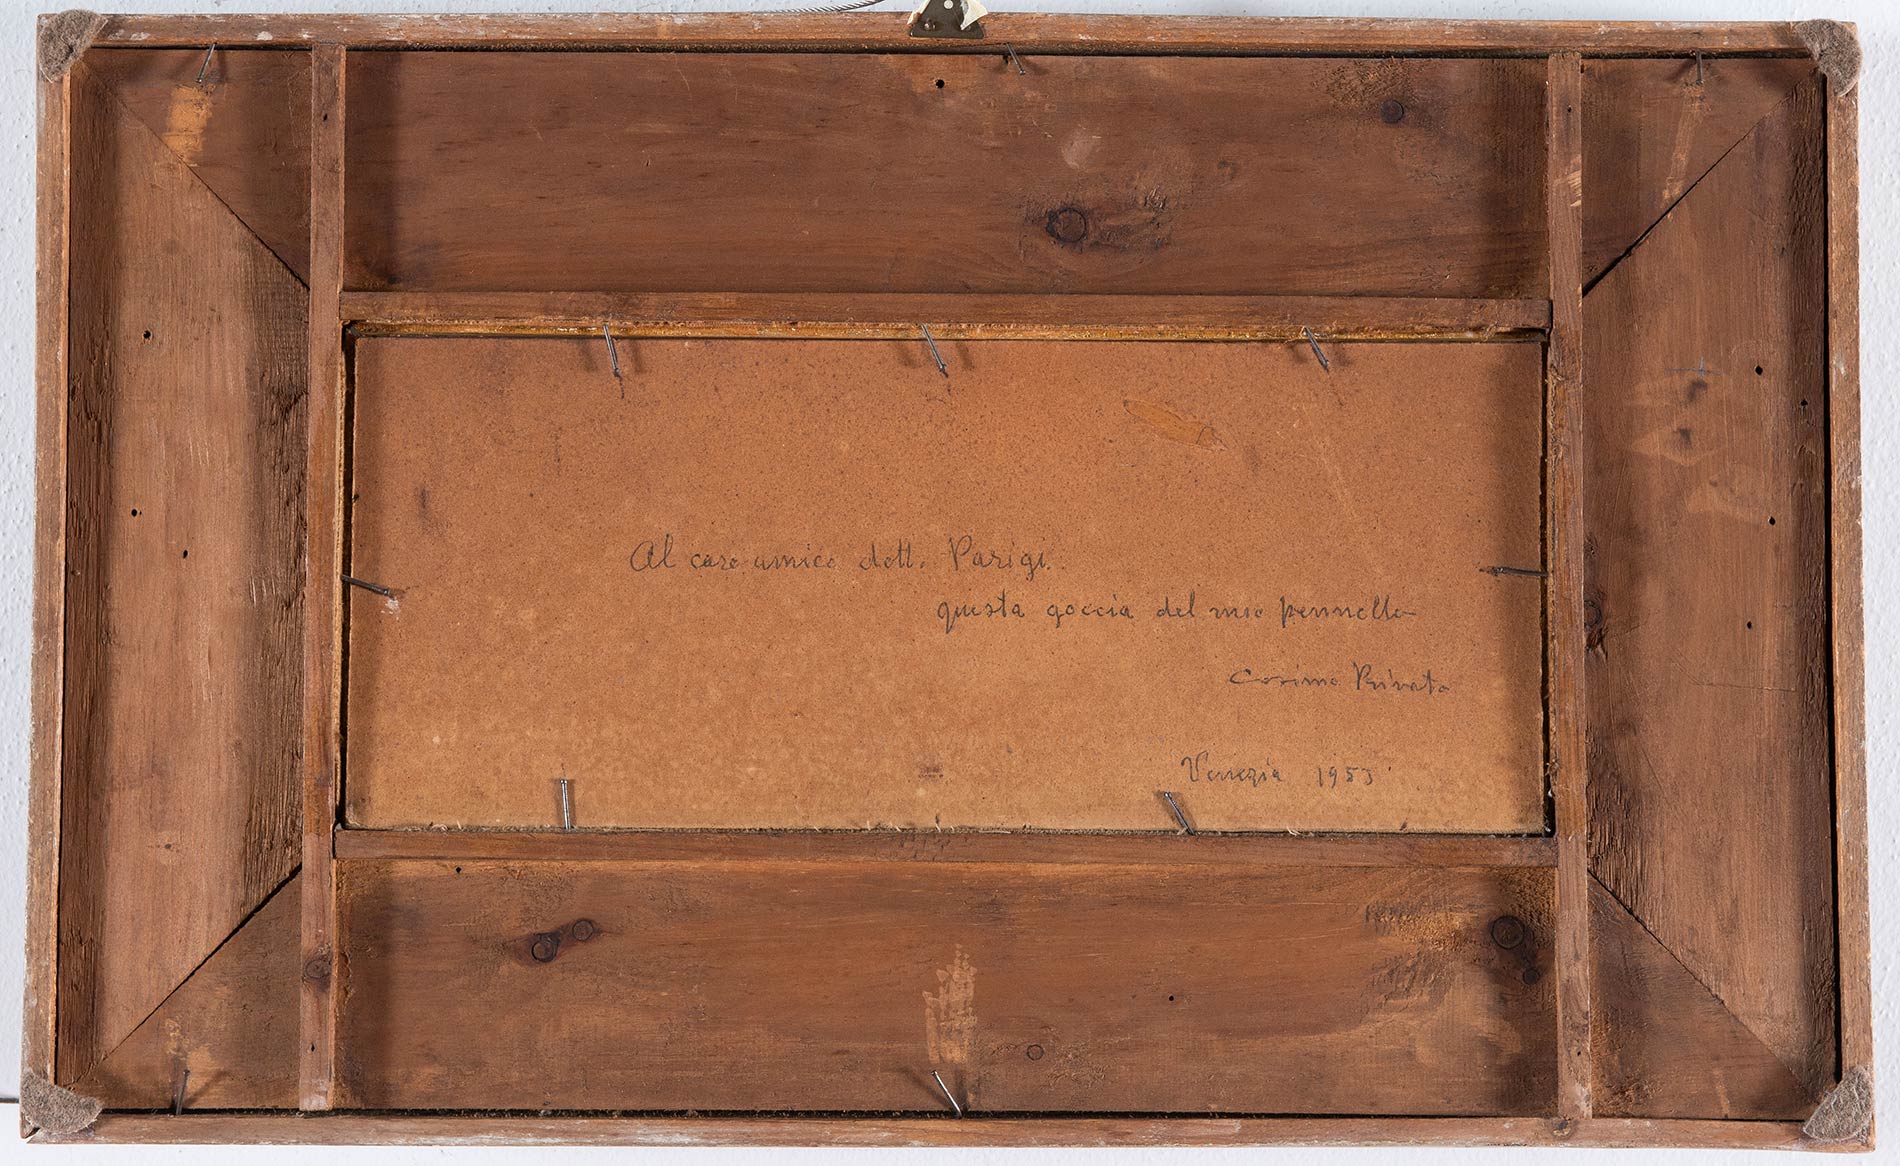 Al caro amico dott. Parigi.
questa goccia del mio pennello
Cosimo Privato
Venezia 1953